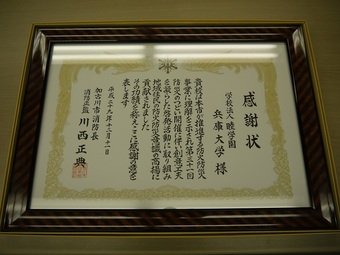 感謝状
学校法人 睦学園
兵庫大学 様
貴校は本市が推進する防火防災
事業に理解を示され第三十一回
防災のつどい開催に伴い創意工夫
を凝らした啓発活動に取り組み
地域住民の防火防災意識の高揚に
貢献されました
その功績を称えここに感謝の意を
表します
平成二十九年十二月十一日
加古川市消防長
消防正監 川西正典